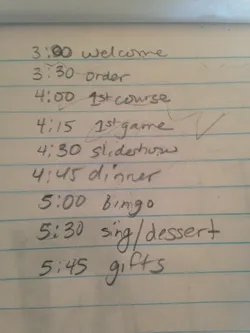 3:00 welcome
3:30 order
4:00 1st course
4:15 1st game
4:30 slideshow
4:45 dinner
5:00 bingo
5:30 sing/dessert
5:45 gifts